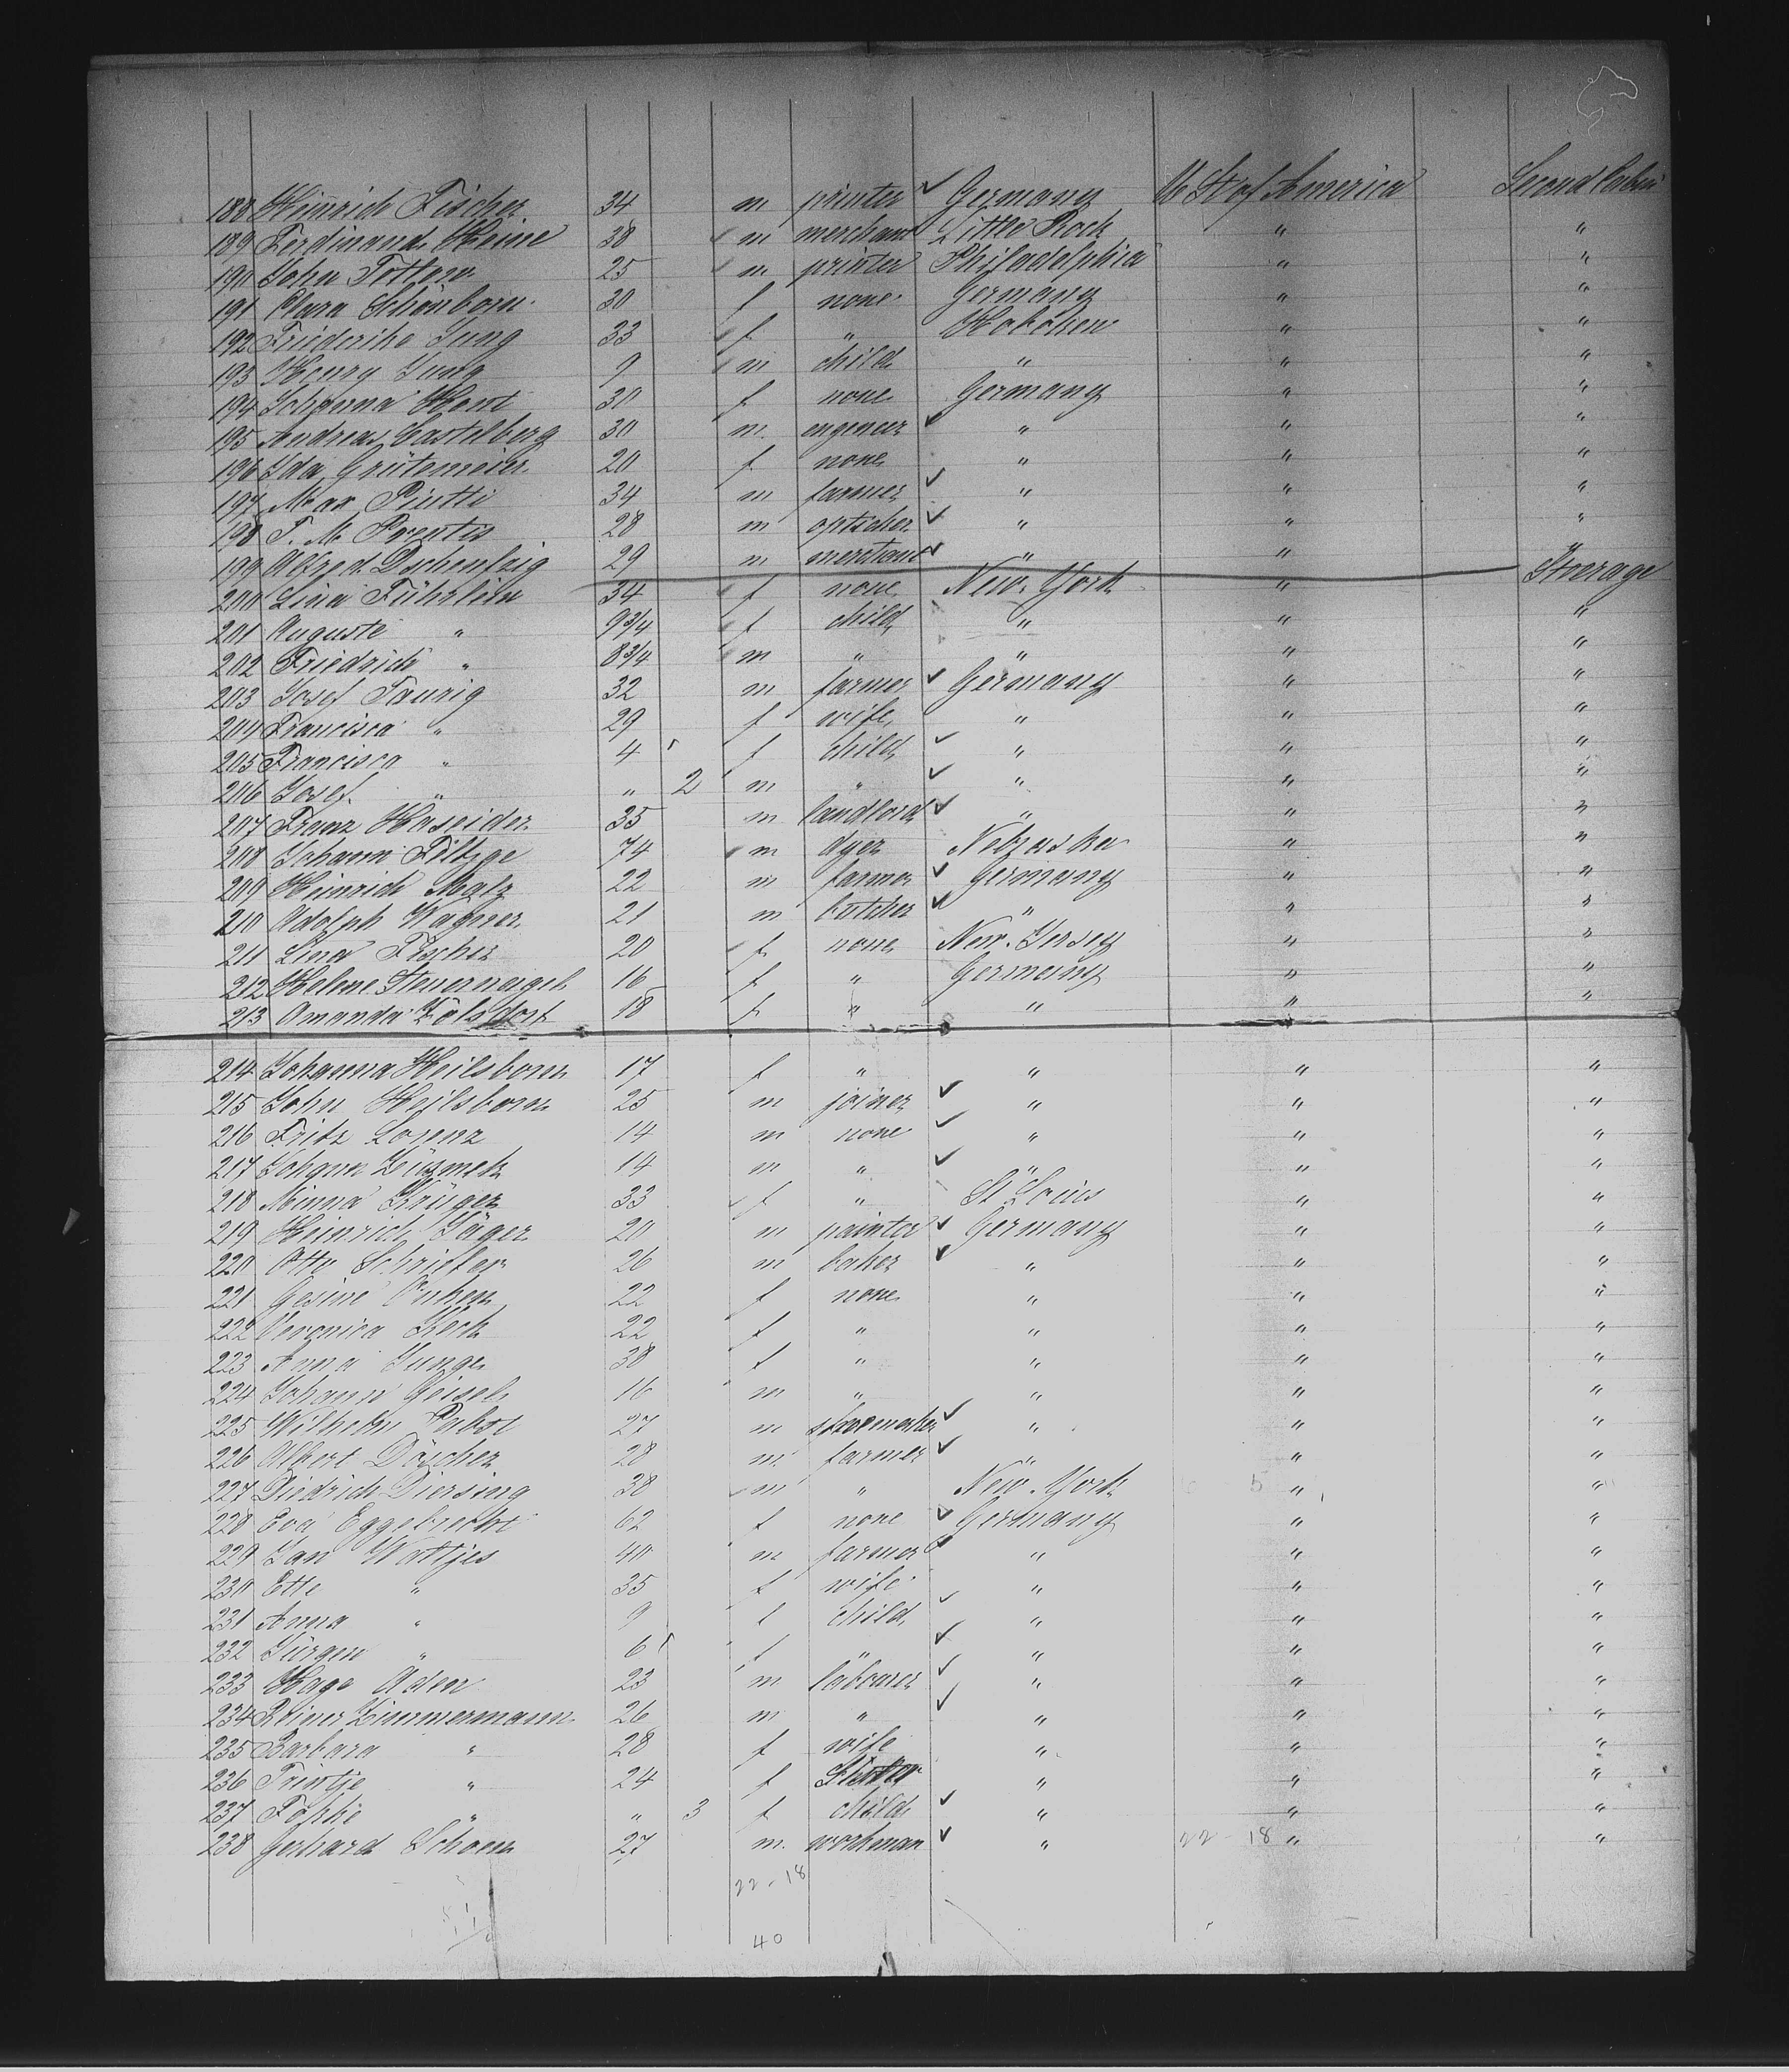 188 Heinrich Fischer 34 m printer ✓ Germany U St of America Second Cabin
189 Ferdinand Heine 38 m merchant Little Rock " "
190 John Totten 25 m printer Philadelphia " "
191 Clara Schönborn 30 f none Germany " "
192 Friderike Jung 33 f " Hoboken " "
193 Henry Jung 9 m child " " "
194 Johanna 30 f none Germany " "
195 Andreas Castelberg 30 m. engeneer ✓ " " "
196 Ida Grütemeier 20 f none " " "
197 Max Piutti 34 m farmer ✓ " " "
198 T. M. 28 m optiker ✓ " " "
199 Alfred 29 m merchant ✓ " " "
200 Lina Führlein 34 f none New-York " Steerage
201 Auguste " 9 3/4 f child " " "
202 Friedrich " 8 3/4 m " " " "
203 Josef Taurig 32 m farmer ✓ Germany " "
204 Francisca " 29 f wife " " "
205 Francisca " 4 f child ✓ " " "
206 Josef " " 2 m " ✓ " " "
207 Franz Haseider 35 m landlord ✓ " " "
208 Johann 74 m dyer Nebraska " "
209 Heinrich 22 m farmer ✓ Germany " "
210 Adolph Wagner 21 m butcher ✓ " " "
211 Lina Fischer 20 f none New-Jersey " "
212 Helene Steuernagel 16 f " Germany " "
213 Amanda 18 f " " " "
214 Johanna Heilsborn 17 f " " " "
215 John Heilsborn 25 m joiner ✓ " " "
216 Fritz Lorenz 14 m none ✓ " " "
217 Johann 14 m " ✓ " " "
218 Minna Krüger 33 f " St Louis " "
219 Heinrich Jäger 20 m painter ✓ Germany " "
220 Otto Schriefer 26 m baker ✓ " " "
221 Gesine 22 f none " " "
222 Veronica Keck 22 f " " " "
223 Anna Junge 38 f " " " "
224 Johann Geisel 16 m " " " "
225 Wilhelm Pabst 27 m shoemaker ✓ " " "
226 Albert Döscher 28 m farmer ✓ " " "
227 Diedrich Diersing 38 m " New-York " "
228 Eva Eggebrecht 62 f none ✓ Germany " "
229 Jan Wattjes 40 m farmer ✓ " " "
230 Ette " 35 f wife " " "
231 Anna " 9 f child ✓ " " "
232 Jürgen " 6 f " ✓ " " "
233 Hage Aden 23 m labourer ✓ " " "
234 Reiner Zimmermann 26 m " ✓ " " "
235 Barbara " 28 f wife " " "
236 Trintje " 24 f " " "
237 Fokke " " 3 f child ✓ " " "
238 Gerhard Schoen 27 m. workman ✓ " 22 - 18 " "
22 - 18
40